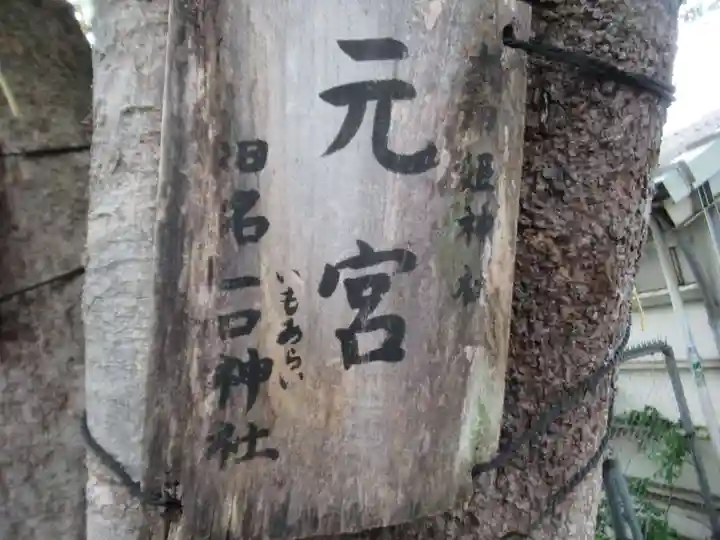 姫神社
元宮
いもあらい
旧名一口神社